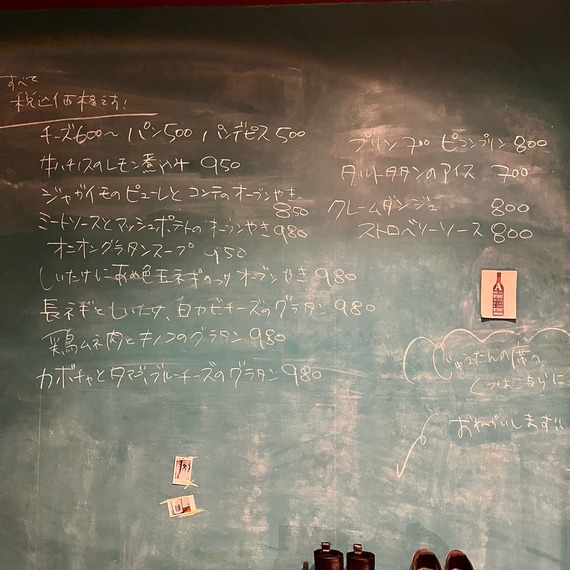 すべて
税込価格です!
チーズ600〜 パン500 パンデピス500
牛ハチノスのレモン煮込み 950
ジャガイモのピューレと コンテのオーブンやき
850
ミートソースとマッシュポテトのオーブンやき 980
オニオングラタンスープ 950
しいたけにあめ色玉ネギのっけ オーブンやき 980
長ネギとしいたけ、白カビチーズのグラタン 980
鶏ムネ肉とキノコのグラタン 980
カボチャとタマゴ、ブルーチーズのグラタン 980
プリン700 ピコンプリン 800
タルトタタンのアイス 700
クレームダンジュ 800
ストロベリーソース 800
じゅうたんの席の
くつはこちらに
おねがいします!!